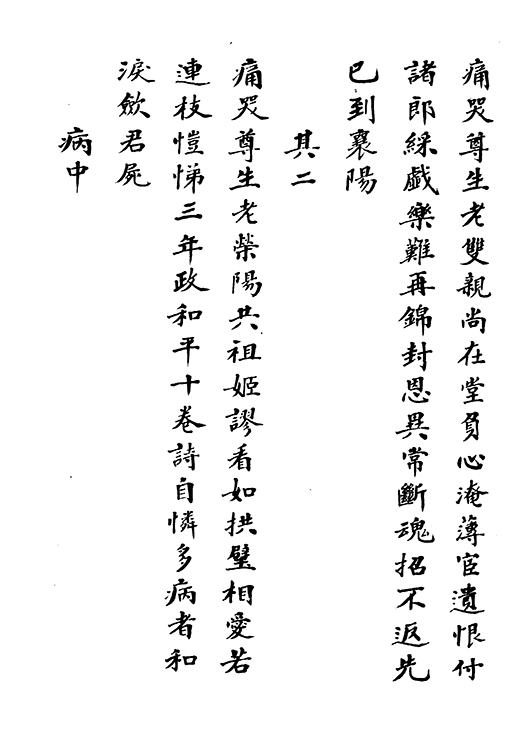 痛哭尊生老雙親尚在堂負心淹薄宦遺恨付
諸郎綵戯樂難再錦封恩異常斷魂招不返先
已到襄陽
其二
痛哭尊生老榮陽共祖姬謬看如拱璧相愛若
連枝愷悌三年政和平十卷詩自憐多病者和
淚斂君屍
病中